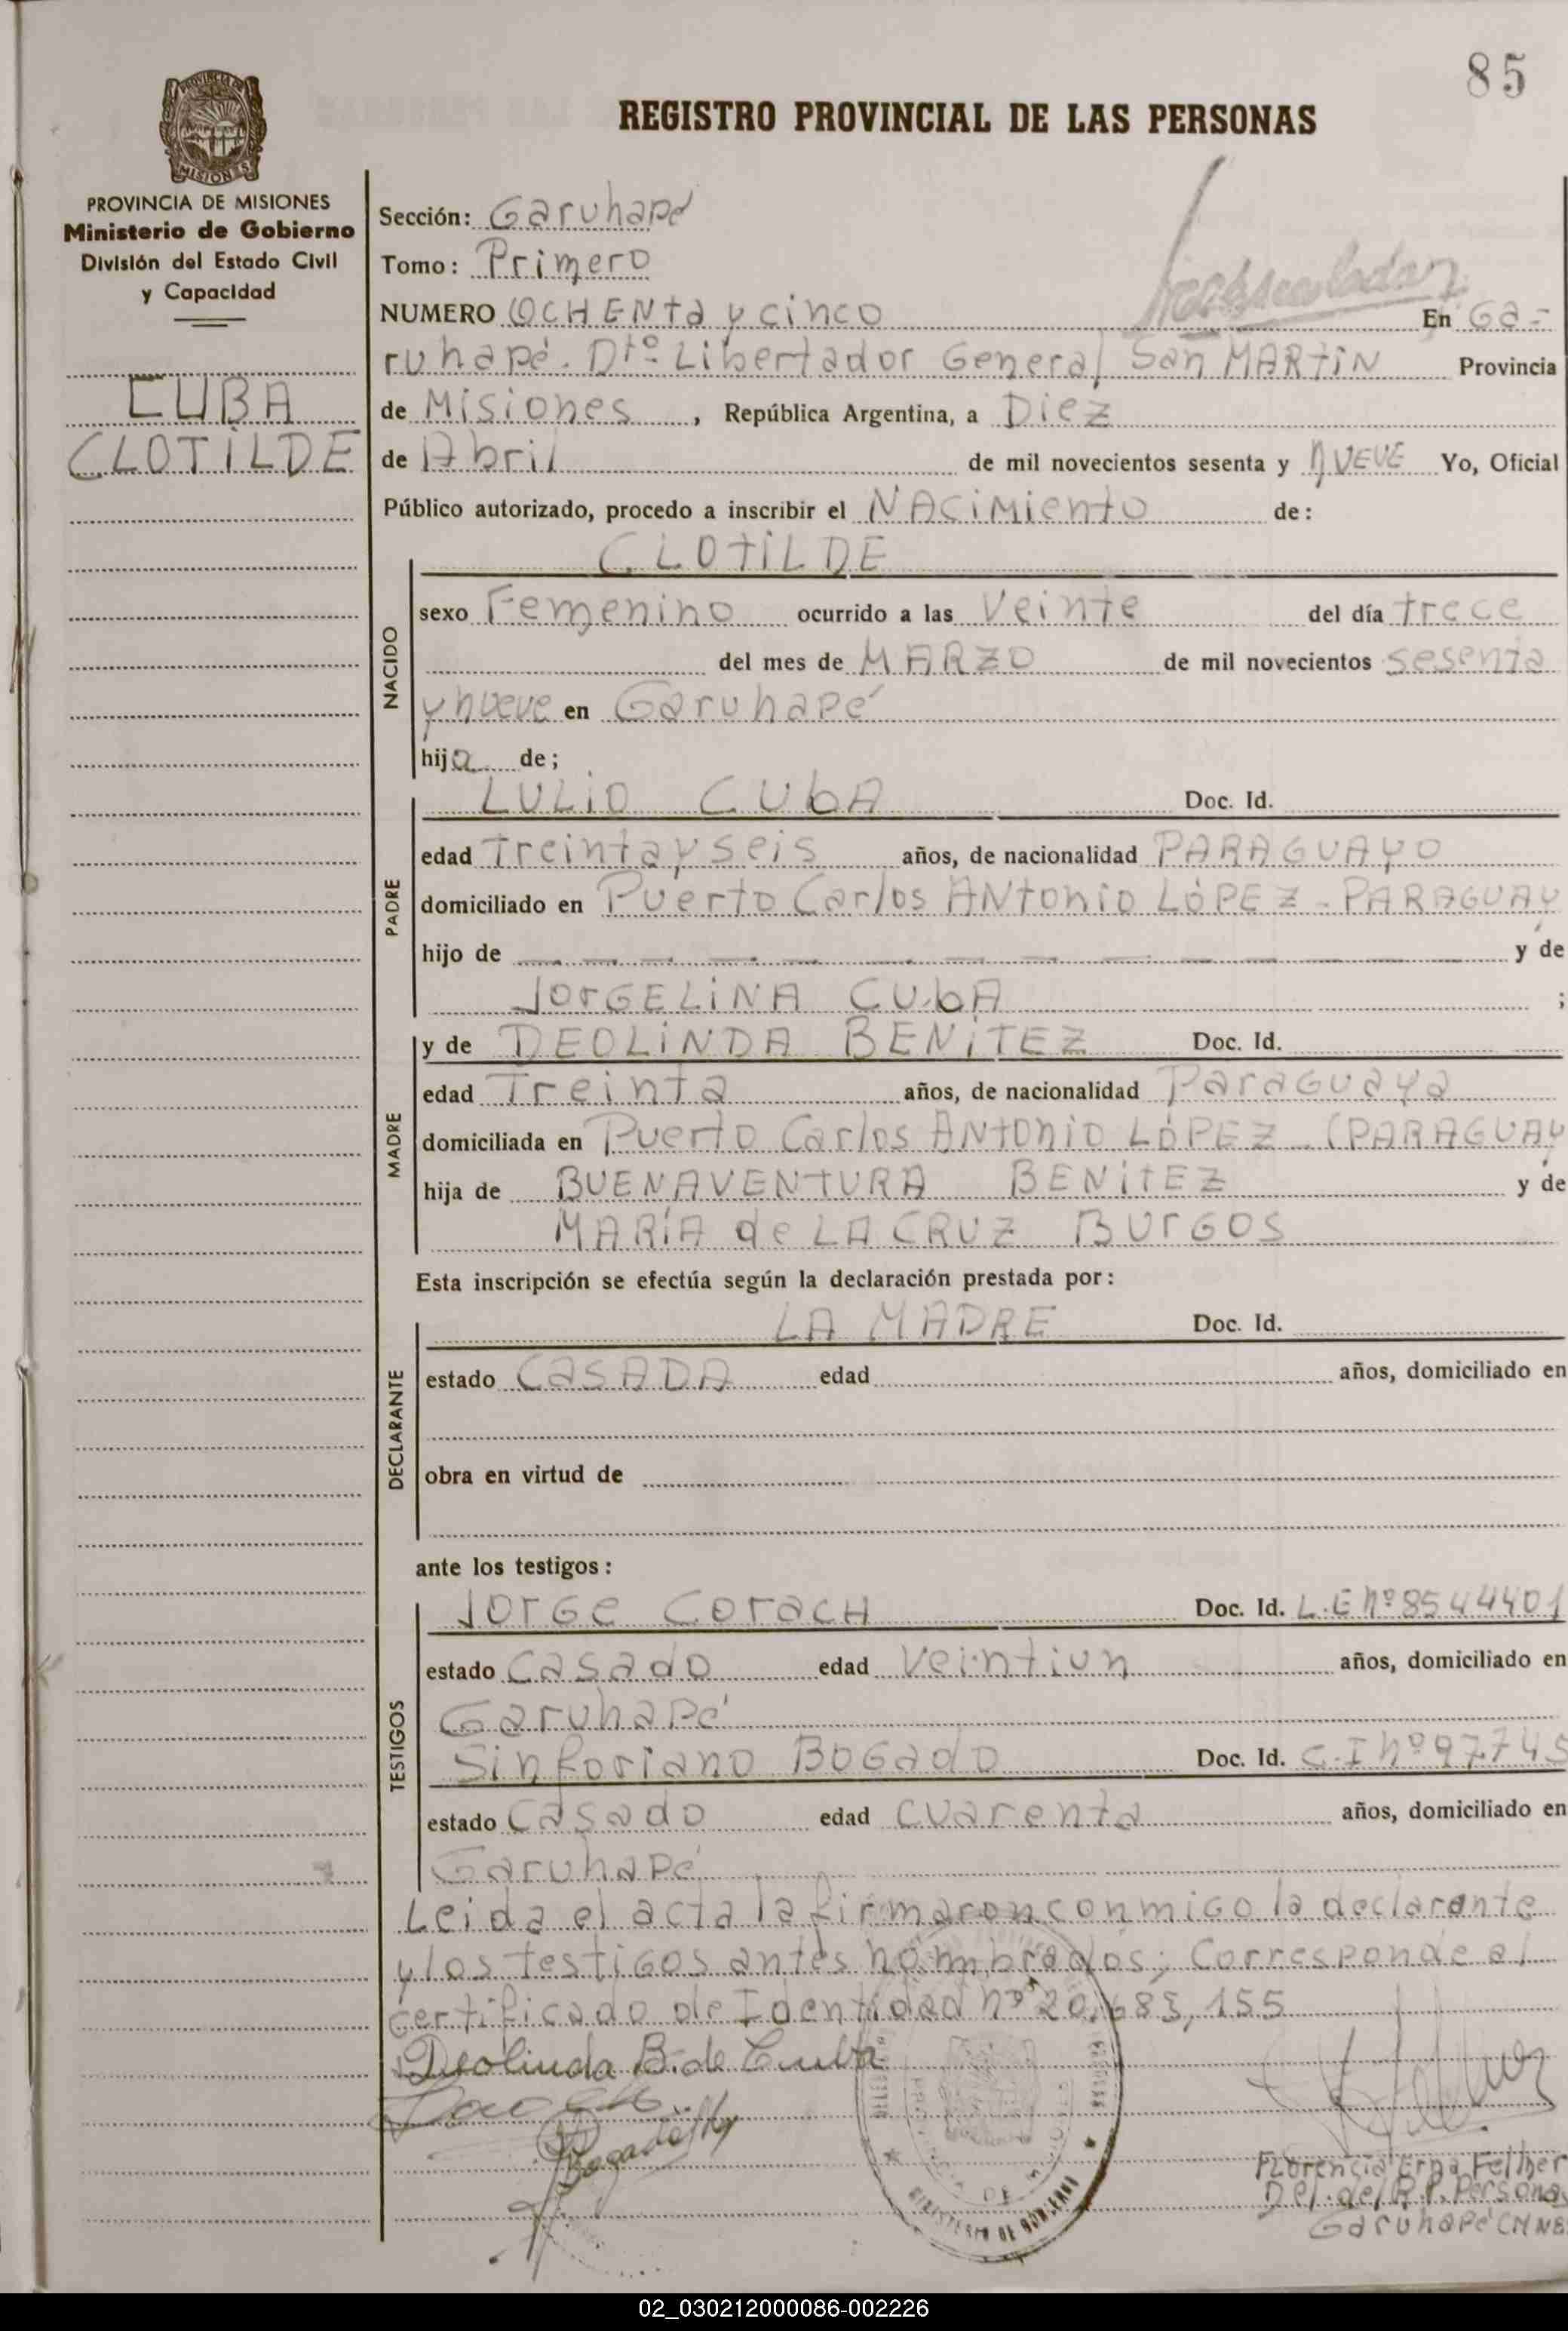 85
REGISTRO PROVINCIAL DE LAS PERSONAS
MISIONES
PROVINCIA DE MISIONES
Ministerio de Gobierno
División del Estado Civil
y Capacidad
CUBA
CLOTILDE
Sección: Garuhapé
Tomo: Primero
NUMERO OCHENta y cinco En Ga=
ruhapé. Dtº Libertador General San MARtiN Provincia
de Misiones, República Argentina, a Diez
de Abril de mil novecientos sesenta y NUEVE Yo, Oficial
Público autorizado, procedo a inscribir el NACiMiento de:
CLOtiLDE
NACIDO
sexo Femenino ocurrido a las Veinte del día trece
del mes de MARZO de mil novecientos sesenta
y nueve en Garuhapé
hija de;
PADRE
LULiO CUbA Doc. Id.
edad Treinta y seis años, de nacionalidad PARAGUAYO
domiciliado en Puerto Carlos ANtonio LÓPEZ - PARAGUAY
hijo de — — — — — — — — — — — y de
JorGELiNA CUbA ;
MADRE
y de DEOLiNDA BENiTEZ Doc. Id.
edad Treinta años, de nacionalidad ParaGuaya
domiciliada en Puerto Carlos ANtonio LÓPEZ - (PARAGUAY
hija de BUENAVENtURA BENitEZ y de
MARÍA de LA CRUZ BUrGOS
Esta inscripción se efectúa según la declaración prestada por:
DECLARANTE
LA MADRE Doc. Id.
estado CaSADA edad años, domiciliado en
obra en virtud de
ante los testigos:
TESTIGOS
JorGe CoracH Doc. Id. L.E nº 8544401
estado Casado edad Veintiun años, domiciliado en
Garuhapé
Sinforiano BOGado Doc. Id. C.I nº 97745
estado Casado edad cuarenta años, domiciliado en
Garuhapé
Leida el acta la firmaron conmigo la declarante
y los testigos antes nombrados; Corresponde al
certificado de Identidad nº 20,685,155
Deolinda B. de Cuba
MINISTERIO DE GOBIERNO
Florencia Erna Fellner
Del. del R.P. Personas
Garuhapé (MNES
02_030212000086-002226